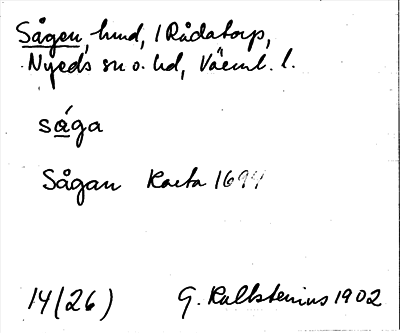 Sågen, hmd, 1 Rådatorp,
Nyeds sn o. hd, Värml. l.
såga
Sågan Karta 1694
14(26) G. Kallstenius 1902